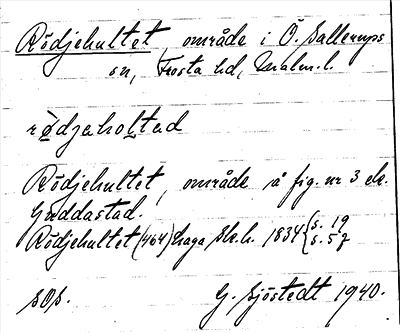 Rödjehultet, område i Ö. Sallerups
sn, Frosta hd, Malm. l.
rø̀djaholtad
Rödjehultet, område å fig. nr 3 ek.
Guddastad.
Rödjehultet (464) Laga sk. h. 1834 { s. 19
s. 57
G. Sjöstedt 1940.